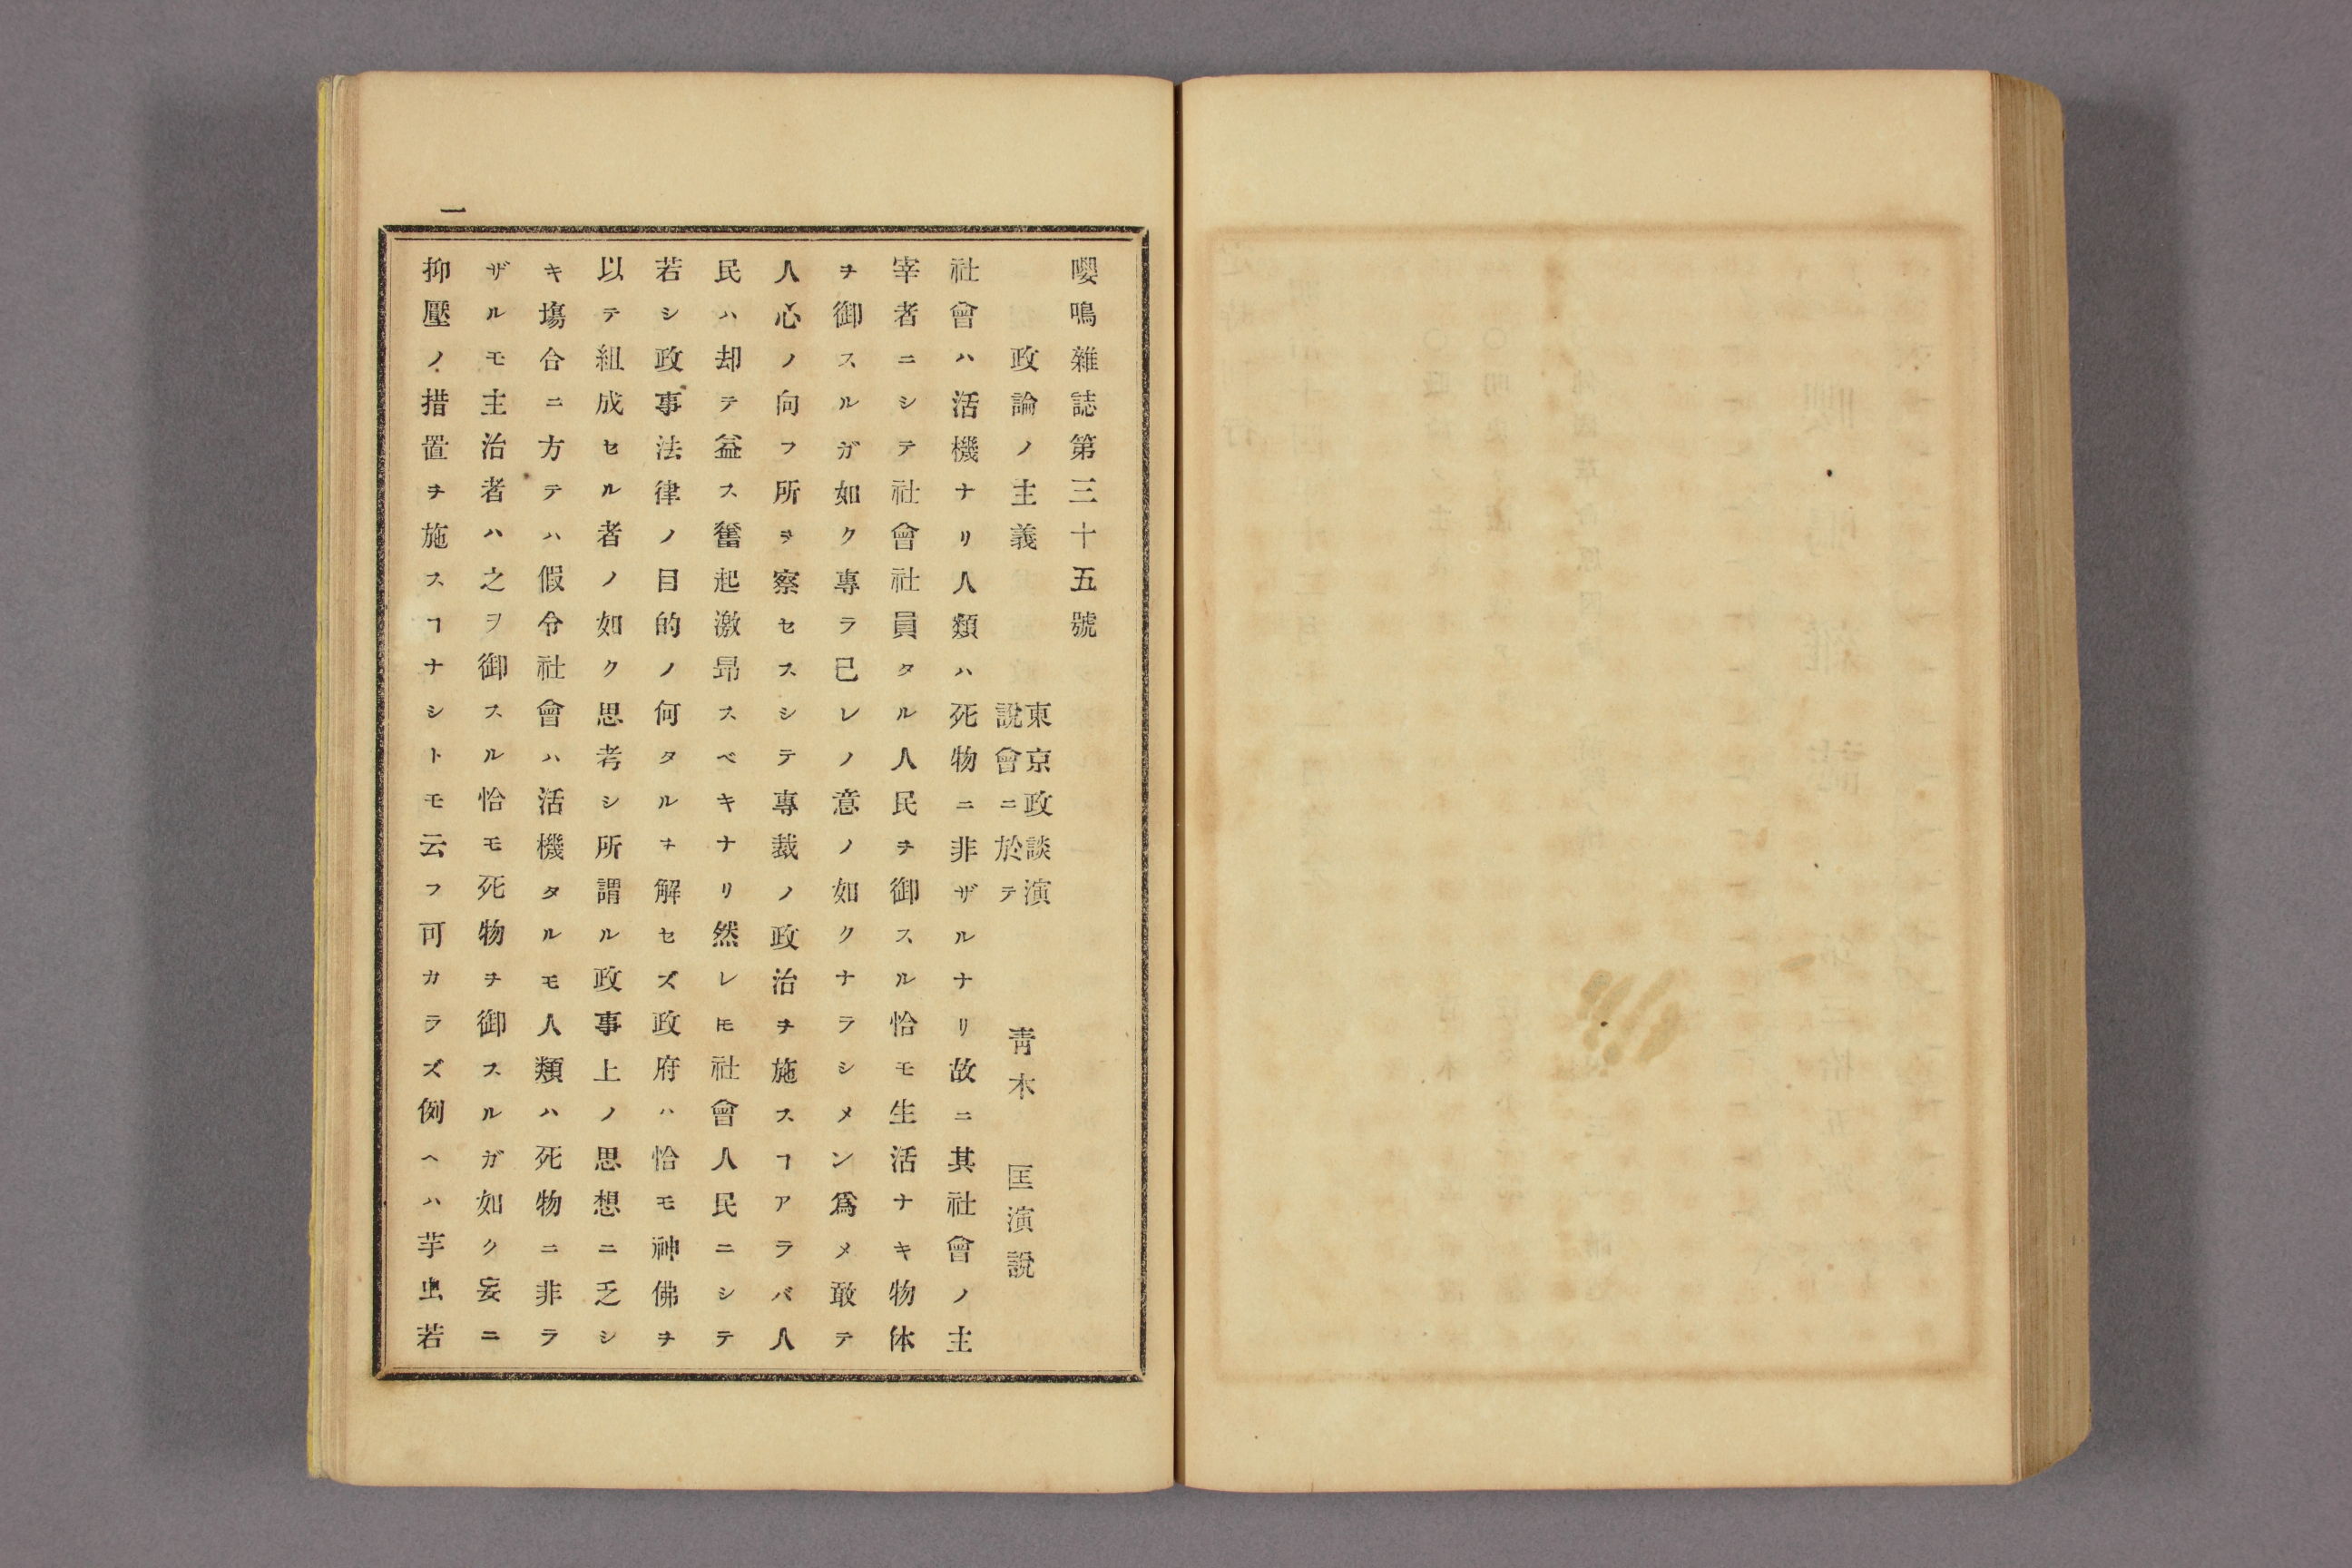 嚶鳴雜誌第三十五號
政論ノ主義
東京政談演
說會ニ於テ
靑木匡演說
社會ハ活機ナリ人類ハ死物ニ非ザルナリ故ニ其社會ノ主
宰者ニシテ社會社員タル人民ヲ御スル恰モ生活ナキ物体
ヲ御スルガ如ク專ラ已レノ意ノ如クナラシメン爲メ敢テ
人心ノ向フ所ヲ察セスシテ專裁ノ政治ヲ施スヿアラバ人
民ハ却テ益ス奮起激昂スベキナリ然レ𪜈社會人民ニシテ
若シ政事法律ノ目的ノ何タルヲ解セズ政府ハ恰モ神佛ヲ
以テ組成セル者ノ如ク思考シ所謂ル政事上ノ思想ニ乏シ
キ塲合ニ方テハ假令社會ハ活機タルモ人類ハ死物ニ非ラ
ザルモ主治者ハ之ヲ御スル恰モ死物ヲ御スルガ如ク妄ニ
抑壓ノ措置ヲ施スヿナシトモ云フ可カラズ例ヘハ芋虫若
一